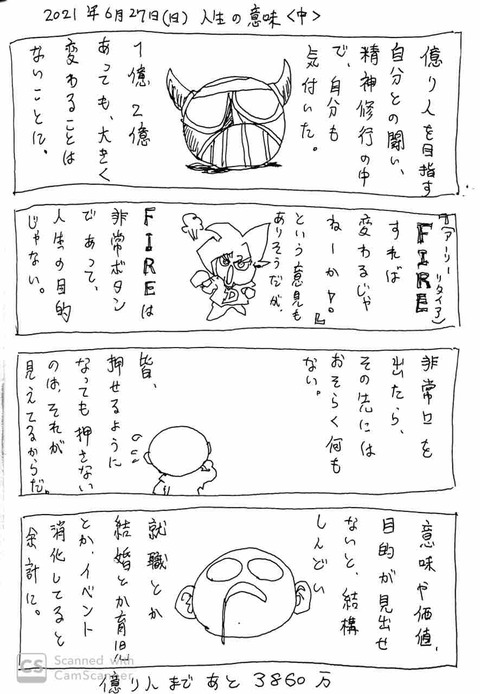 2021年6月27日(日) 人生の意味〈中〉
億り人を目指す
自分との闘い、
精神修行の中
で、自分も
気付いた。
1億2億
あっても、大きく
変わることは
ないことに。
『FIRE(アーリーリタイア)
すれば
変わるじゃ
ねーかヤ。』
という意見も
ありそうだが、
FIREは
非常ボタン
であって、
人生の目的
じゃない。
D
非常口を
出たら、
その先には
おそらく何も
ない。
皆、
押せるように
なっても押さない
のは、それが
見えてるからだ。
意味や価値、
目的が見出せ
ないと、結構
しんどい
就職とか
結婚とか育児
とか、イベント
消化してると
余計に。
億り人まであと3860万
CS Scanned with
CamScanner